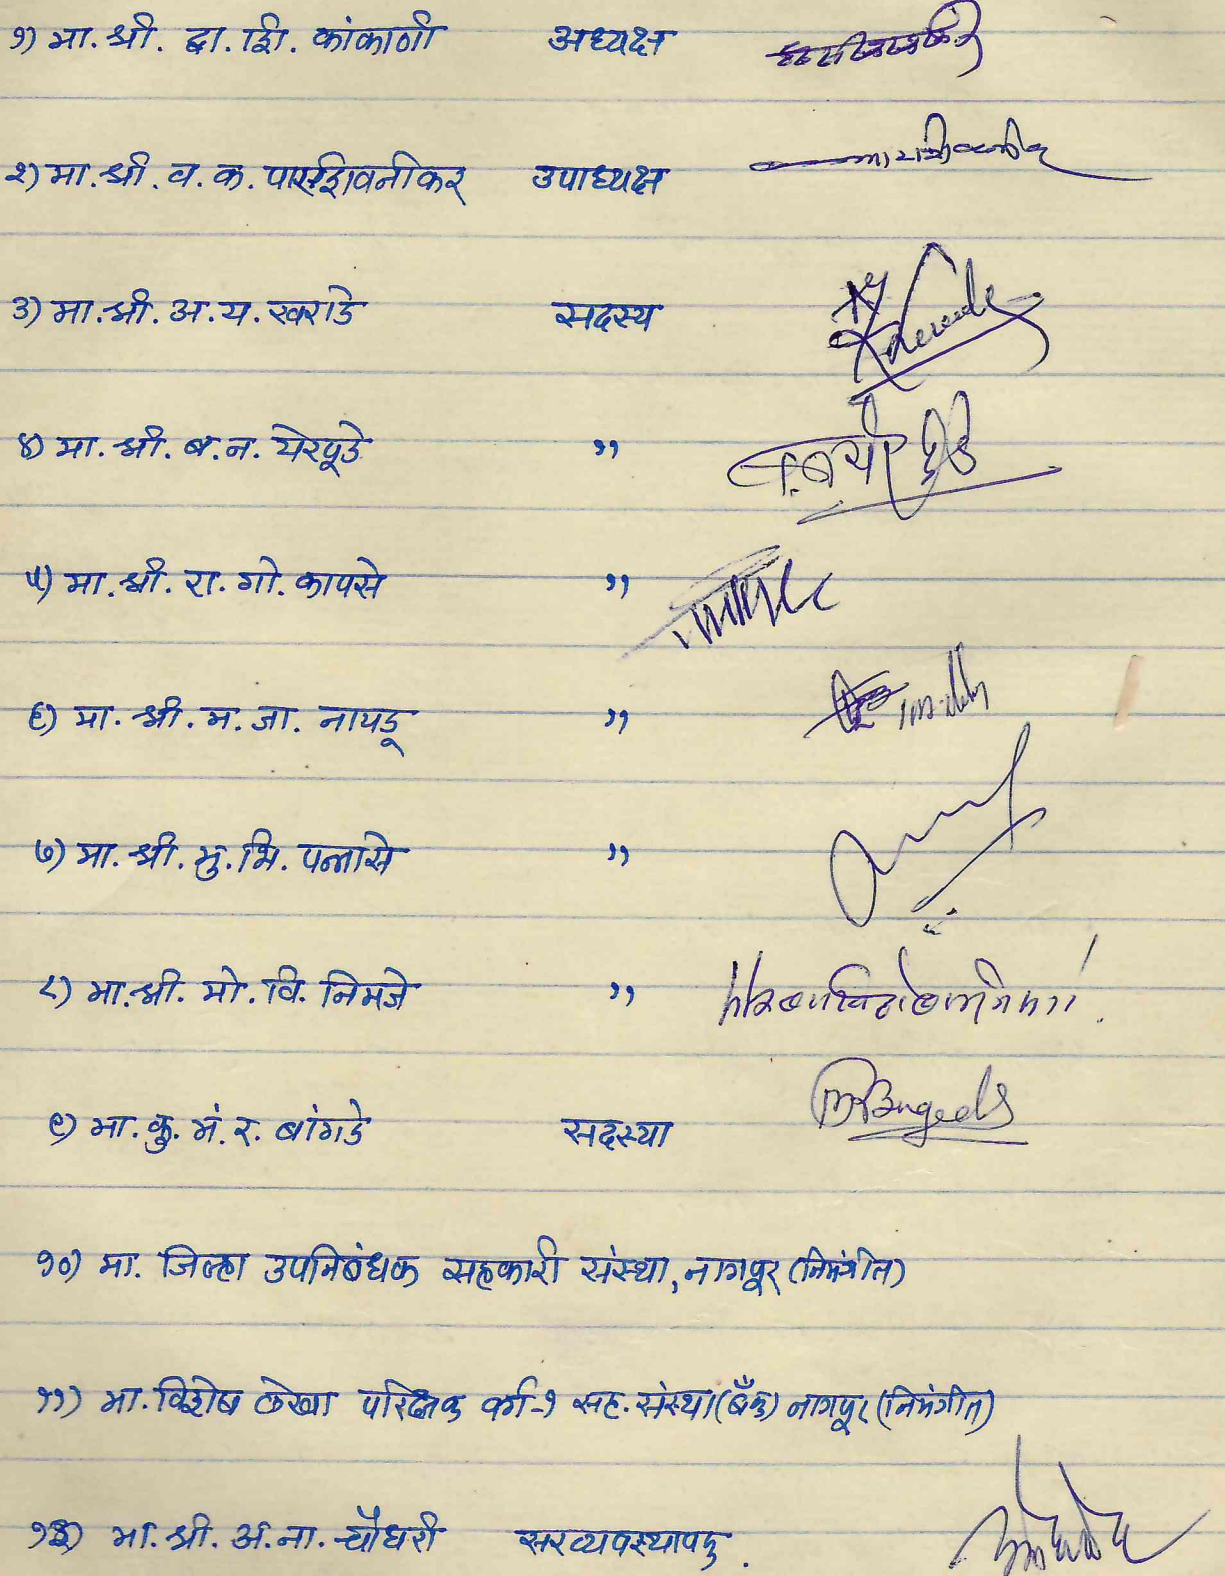 १) मा. श्री. द्वा. शि. कांकाणी अध्यक्ष
२) मा. श्री. व. क. पारशिवनीकर उपाध्यक्ष
३) मा. श्री. अ. य. खराडे सदस्य
४) मा. श्री. ब. न. येरपूडे ,,
५) मा. श्री. रा. गो. कापसे ,,
६) मा. श्री. म. जा. नायडू ,,
७) मा. श्री. मु. भि. पन्नासे ,,
८) मा. श्री. मो. वि. निमजे ,,
९) मा. कु. मं. र. बांगडे सदस्या
१०) मा. जिल्हा उपनिबंधक सहकारी संस्था, नागपूर (निमंत्रीत)
११) मा. विशेष लेखा परिक्षक वर्ग-१ सह. संस्था (बँक) नागपूर (निमंत्रीत)
१२) मा. श्री. अ. ना. चौधरी सरव्यवस्थापक.